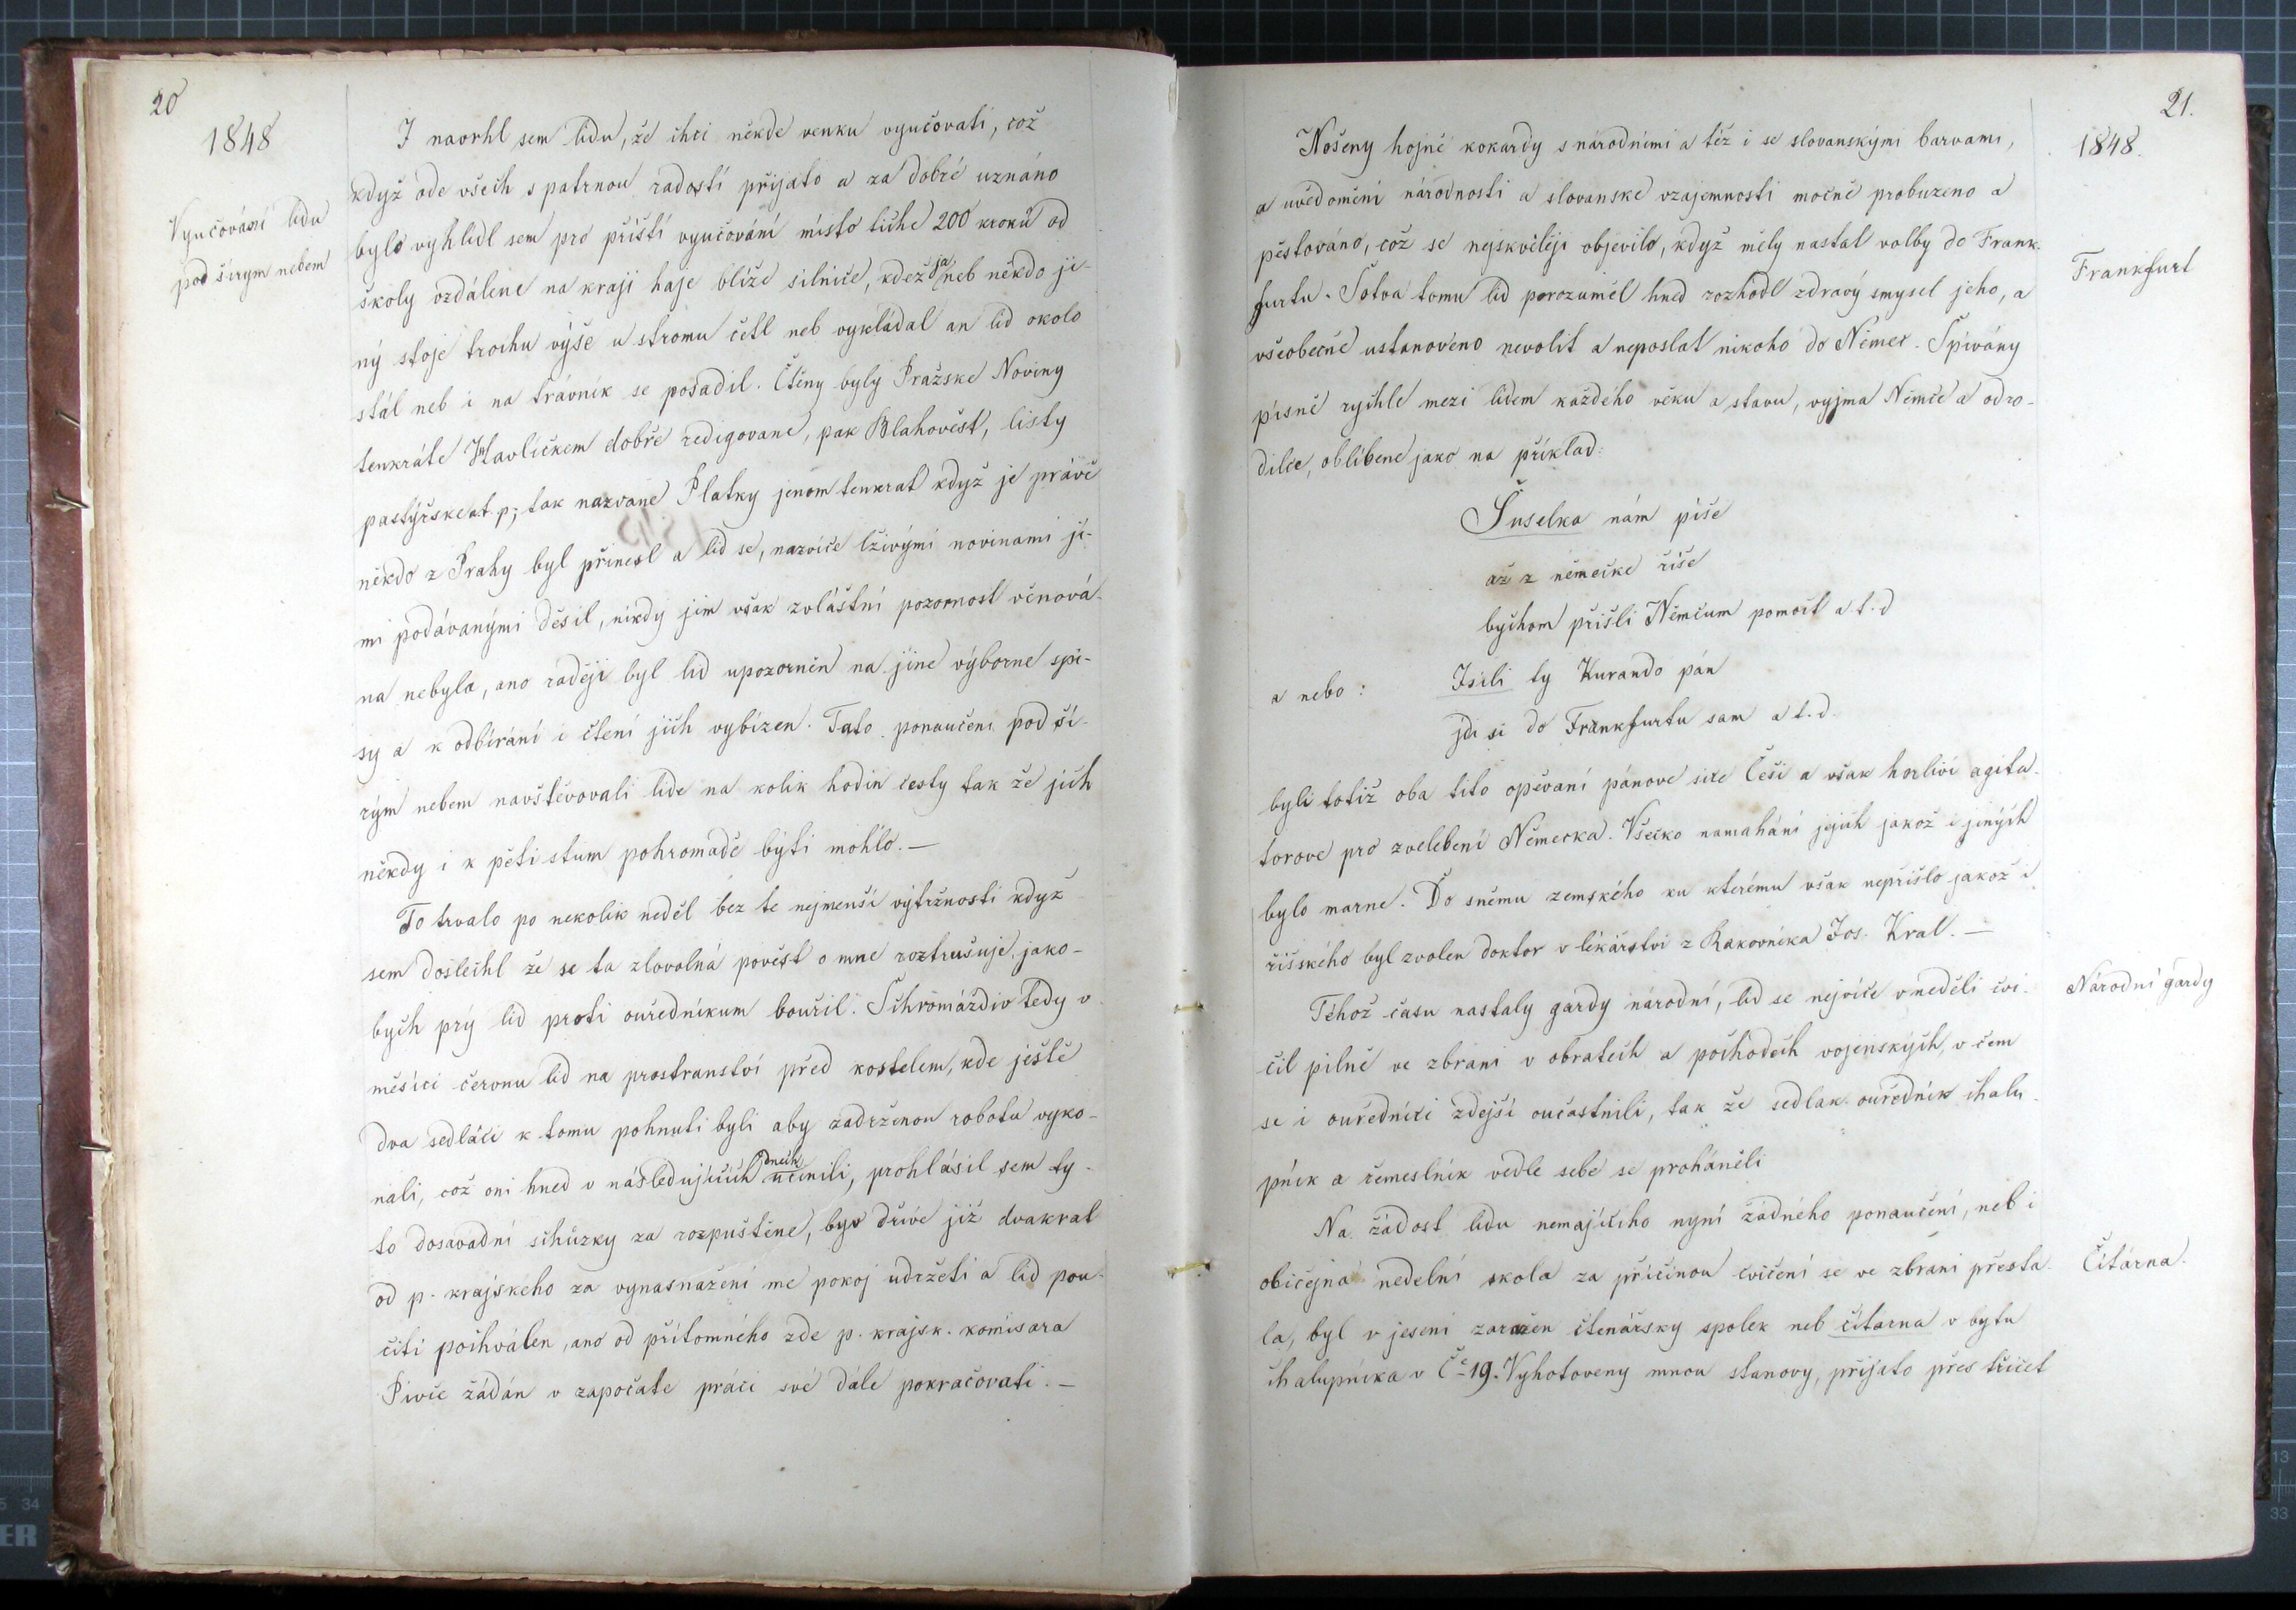 20
1848
Vyučování lidu
pod širym nebem
I navrhl sem lidu, že chci někde venku vyučovati, což
když ode všech s patrnou radostí přijato a za dobré uznáno
bylo vyhlidl sem pro přištì vyučování místo tiché 200 kroků od
školy vzdálené na kraji haje bliže silnice, kdež ja neb někdo ji-
ný stoje trochu výše u stromu četl neb vykládal an lid okolo
stál neb i na trávnik se posadil. Čteny byly Pražske Noviny
tenkráte Havličkem dobře redigované, pak Blahověst, listy
pastýřske a t. p; tak nazvane Platky jenom tenkrat když je právě
někdo z Prahy byl přinesl a lid se, nazvice lživými novinami ji-
mi podávanými děsil, nikdy jim však zvláštní pozornost věnová-
na nebyla, ano raději byl lid upozorněn na jine výborne spi-
sy a k odbírání i čtení jich vybízen. Tato ponaučeni pod ší-
rým nebem navštěvovali lide na kolik hodin cesty tak že jich
někdy i k pěti stum pohromadě býti mohlo. —
To trvalo po nekolik neděl bez te nejmenší výtržnosti když
sem doslechl že se ta zlovolná pověst o mne roztrušuje, jako-
bych prý lid proti ouředníkum bouřil. Schromáždiv tedy v
měsíci červnu lid na prostranství před kostelem, kde ještě
dva sedláci k tomu pohnuti byli aby zadrženou robotu vyko-
nali, což oni hned v následujících dnech učinili, prohlásil sem ty-
to dosavadní schůzky za rozpuštěne, byv dříve již dvakrat
od p. krajského za vynasnažení mé pokoj udržeti a lid pou-
čiti pochválen, ano od přitomného zde p. krajsk. komisara
Pivce žádán v započate práci své dále pokračovati. —
21.
1848.
Nošeny hojně kokardy s národními a též i se slovanskými barvami,
a uvědomění národnosti a slovanské vzajemnosti mocně probuzeno a
pěstováno, což se nejskvěleji objevilo, když měly nastat volby do Frank-
Frankfurt
furtu. Sotva tomu lid porozuměl hned rozhodl zdravý smysel jeho, a
všeobecně ustanoveno nevolit a neposlat nikoho do Němec. Spívány
pisně rychle mezi lidem každého věku a stavu, vyjma Němce a odro-
dilce, oblibené jako na přiklad:
Šuselka nám piše
až z německe řiše
bychom přišli Němcum pomoct a. t. d
a nebo: Jsili ty Kurando pán
jdi si do Frankfurtu sam a t. d.
byli totiž oba tito opěvaní pánové sice Češi a však horliví agita-
torove pro zvelebení Německa. Všecko namahání jejich jakož i jiných
bylo marne. Do sněmu zemského ku kterému však nepřišlo jakož i
řišského byl zvolen doktor v lékářství z Rakovníka Jos. Kral. —
Téhož času nastaly gardy národní, lid se nejvíce v neděli cvi-
Národní gardy
čil pilně ve zbrani v obratech a pochodech vojenských, v čem
se i ouředníci zdejší oučastnili, tak že sedlak ouředník chalu-
pník a řemeslník vedle sebe se proháněli
Na žádost lidu nemajícího nyní žádného ponaučení, neb i
običejná nedelní skola za příčinou cvičení se ve zbrani přesta-
Čítárna.
la, byl v jeseni zaražen čtenářsky spolek neb čítarna v bytu
chalupníka v Če 19. Vyhotoveny mnou stanovy, přijato přes třicet